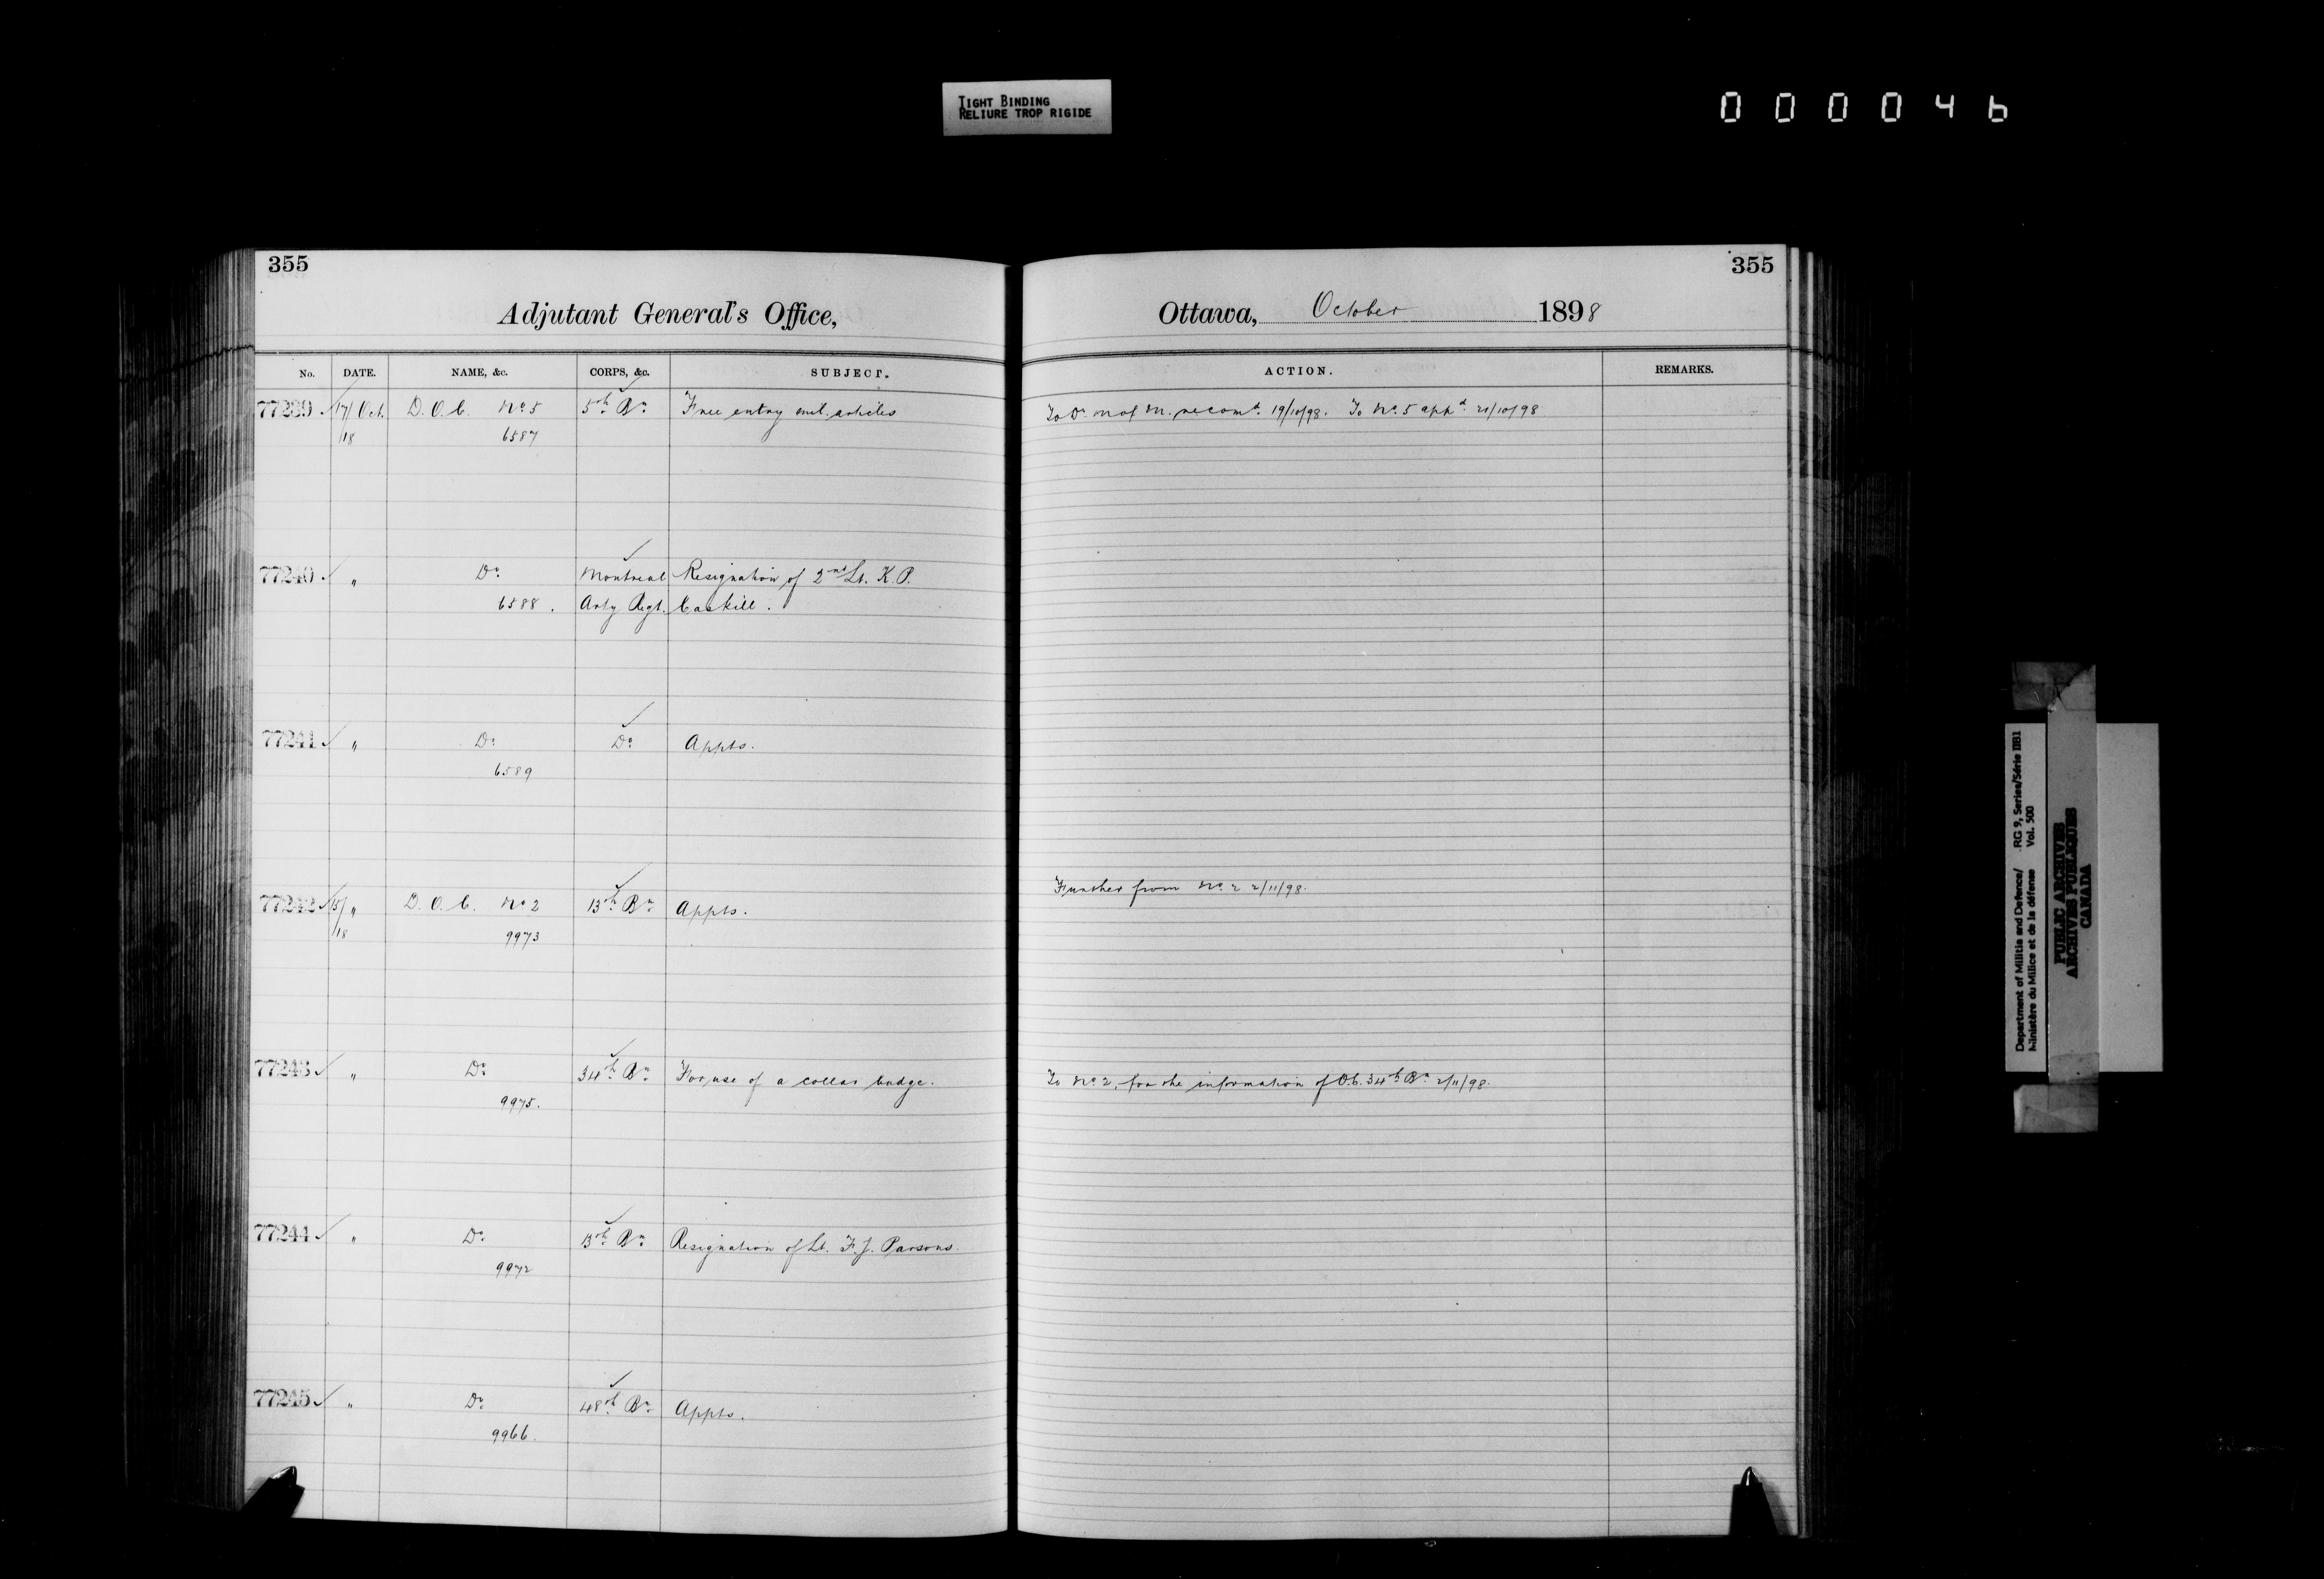 TIGHT BINDING
RELIURE TROP RIGIDE
000046
355
Adjutant General's Office,
No. DATE. NAME, &c. CORPS, &c. SUBJECT.
77239 ✓ 17/18 Oct. D.O.C. No. 5 5th Bn. Free entry mil. articles
6587
77240 ✓ " Do. Montreal Resignation of 2nd Lt. K.P.
6588. Arty Regt. Caskill.
77241 ✓ " Do. Do. Appts.
6589
77242 ✓ 15/18 " D.O.C. No. 2 13th Bn. Appts.
9973
77243 ✓ " Do. 34th Bn. For use of a collar badge.
9975.
77244 ✓ " Do. 13th Bn. Resignation of Lt. F.J. Parsons.
9972
77245 ✓ " Do. 48th Bn. Appts.
9966.
355
Ottawa, October 1898
ACTION. REMARKS.
To D. M of M. recomd. 19/10/98. To No. 5 appd. 21/10/98
Further from No. 2 2/11/98.
To No. 2, for the information of O.C. 34th Bn. 2/11/98.
Department of Militia and Defence/ RG 9, Series/Série IIB1
Ministère du Milice et de la défense Vol. 500
PUBLIC ARCHIVES
ARCHIVES PUBLIQUES
CANADA